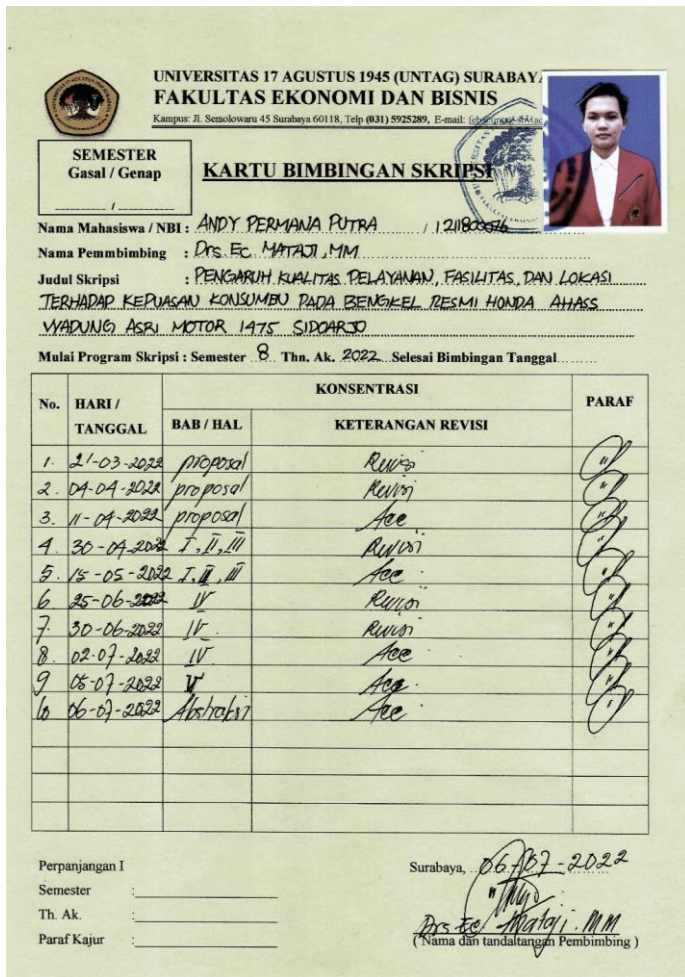 UNIVERSITAS 17 AGUSTUS 1945 (UNTAG) SURABAYA
FAKULTAS EKONOMI DAN BISNIS
Kampus: Jl. Semolowaru 45 Surabaya 60118, Telp (031) 5925289, E-mail:
SEMESTER
Gasal / Genap
/
KARTU BIMBINGAN SKRIPSI
Nama Mahasiswa / NBI : ANDY PERMANA PUTRA / 1211800076
Nama Pemmbimbing : Drs. Ec. MATAJI, MM
Judul Skripsi : PENGARUH KUALITAS PELAYANAN, FASILITAS, DAN LOKASI
TERHADAP KEPUASAN KONSUMEN PADA BENGKEL RESMI HONDA AHASS
WADUNG ASRI MOTOR 1475 SIDOARJO
Mulai Program Skripsi : Semester 8 Thn. Ak. 2022 Selesai Bimbingan Tanggal
No. HARI / TANGGAL KONSENTRASI PARAF
BAB / HAL KETERANGAN REVISI
1. 21-03-2022 proposal Revisi
2. 04-04-2022 proposal Revisi
3. 11-04-2022 proposal Acc
4. 30-04-2022 I, II, III Revisi
5. 15-05-2022 I, II, III Acc
6 25-06-2022 IV Revisi
7. 30-06-2022 IV Revisi
8. 02-07-2022 IV Acc
9 05-07-2022 V Acc
10 06-07-2022 Abstraksi Acc
Perpanjangan I
Semester :
Th. Ak. :
Paraf Kajur :
Surabaya, 06-07-2022
Drs Ec Mataji. MM
( Nama dan tandatangan Pembimbing )